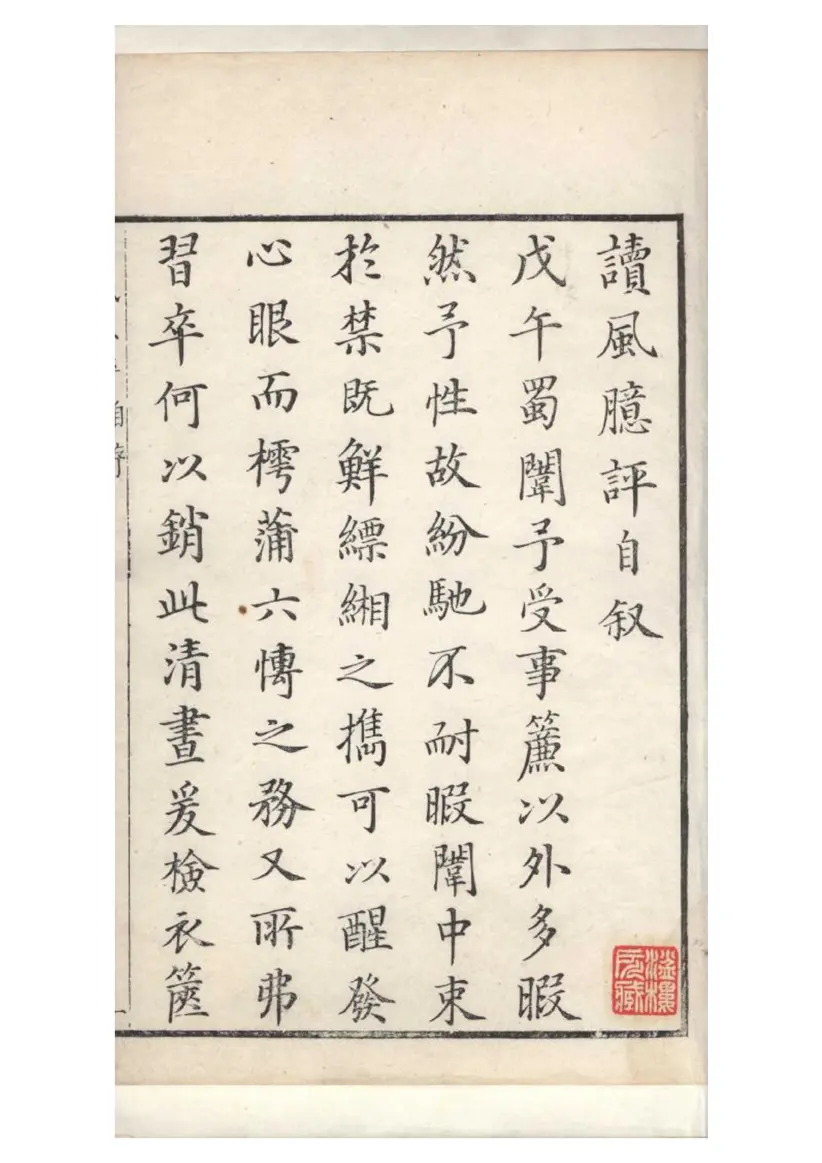 讀風臆評自叙
戊午蜀闈予受事簾以外多暇
然予性故紛馳不耐暇闈中束
於禁既鮮縹緗之擕可以醒發
心眼而樗蒲六愽之務又所弗
習卒何以銷此清晝爰檢衣篋
自序
涵樓
所藏